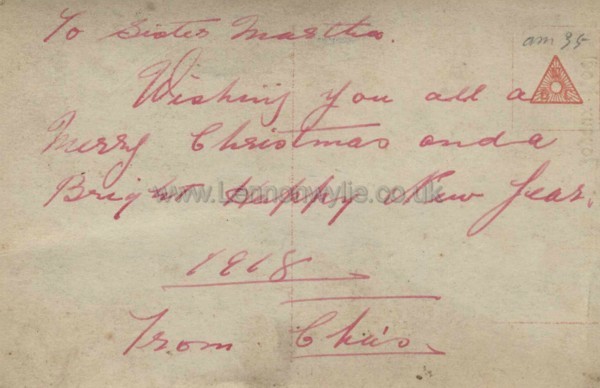 To Sister Martha.
am 35
Wishing you all a
Merry Christmas and a
Bright Happy New Year.
www.Lennonwylie.co.uk
1918
From Cha's.